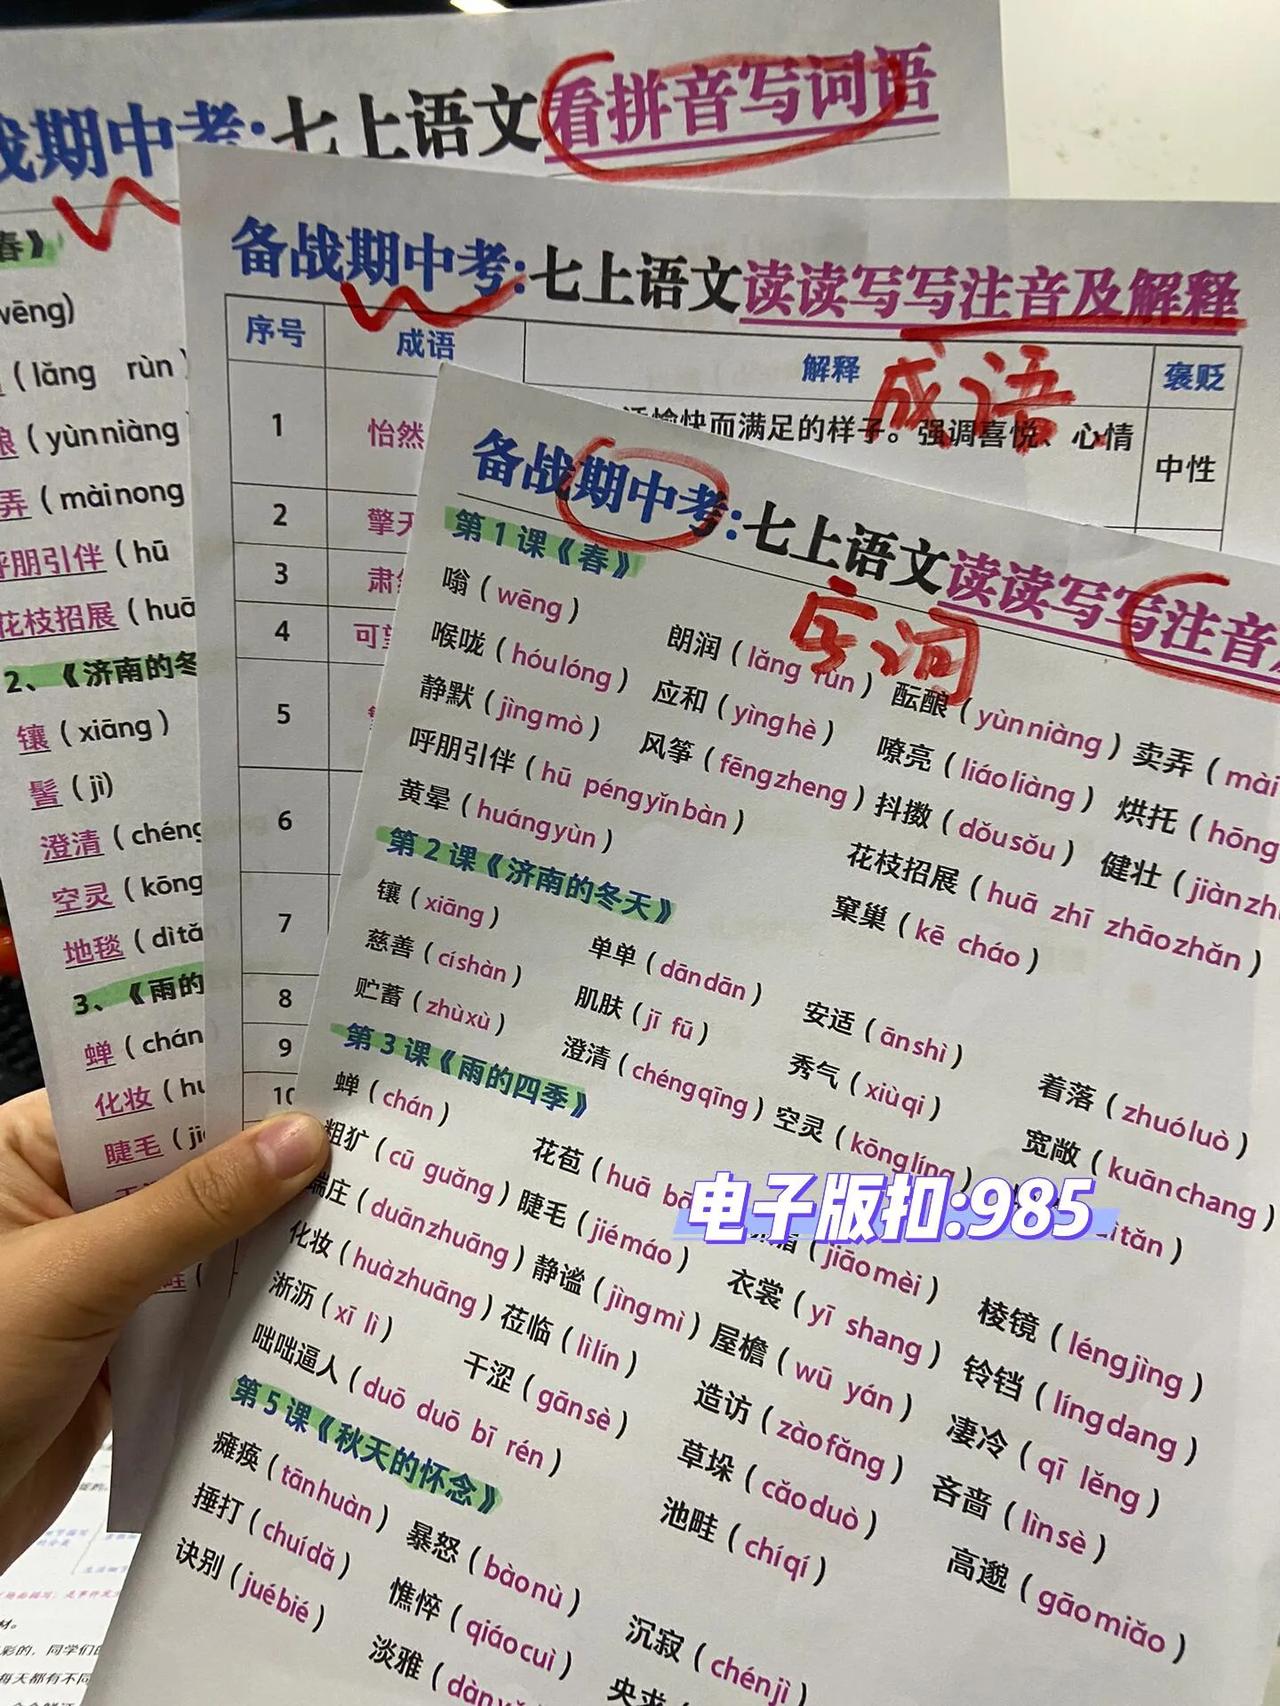 战期中考:七上语文看拼音写词语
春》
wēng)
(lǎng rùn)
酿(yùnniàng
弄(màinong
呼朋引伴(hū
花枝招展(huā
2、《济南的冬
镶(xiāng)
髻(jì)
澄清(chéng
空灵(kōng
地毯(dìtǎ
3、《雨的
蝉(chán
化妆(hu
睫毛(ji
备战期中考:七上语文读读写写注音及解释
成语
序号 成语 解释 褒贬
1 怡然 愉快而满足的样子。强调喜悦、心情 中性
2 擎天
3 肃
4 可望
5
6
7
8
9
10
备战期中考:七上语文读读写写注音
字词
第1课《春》
嗡(wēng) 朗润(lǎng rùn) 酝酿(yùnniàng) 卖弄(mài
喉咙(hóulóng) 应和(yìnghè) 嘹亮(liáoliàng) 烘托(hōng
静默(jìngmò) 风筝(fēngzheng) 抖擞(dǒusǒu) 健壮(jiànzh
呼朋引伴(hū péngyǐnbàn) 花枝招展(huā zhī zhāozhǎn)
黄晕(huángyùn) 窠巢(kē cháo)
第2课《济南的冬天》
镶(xiāng) 单单(dāndān) 安适(ānshì) 着落(zhuóluò)
慈善(císhàn) 肌肤(jī fū) 秀气(xiùqi) 宽敞(kuānchang)
贮蓄(zhùxù) 澄清(chéngqīng) 空灵(kōnglíng) ìtǎn)
第3课《雨的四季》
蝉(chán) 花苞(huā bā 眉(jiāomèi) 棱镜(léngjìng)
粗犷(cū guǎng) 睫毛(jiémáo) 衣裳(yī shang) 铃铛(língdang)
端庄(duānzhuāng) 静谧(jìngmì) 屋檐(wū yán) 凄冷(qī lěng)
化妆(huàzhuāng) 莅临(lìlín) 造访(zàofǎng) 吝啬(lìnsè)
淅沥(xī lì) 干涩(gānsè) 草垛(cǎoduò) 高邈(gāomiǎo)
咄咄逼人(duō duō bī rén) 池畦(chíqí)
第5课《秋天的怀念》
瘫痪(tānhuàn) 暴怒(bàonù) 沉寂(chénjì)
捶打(chuídǎ) 憔悴(qiáocuì) 央求
诀别(juébié) 淡雅(dàn
电子版扣:985
彩的,同学们
每天都有不同